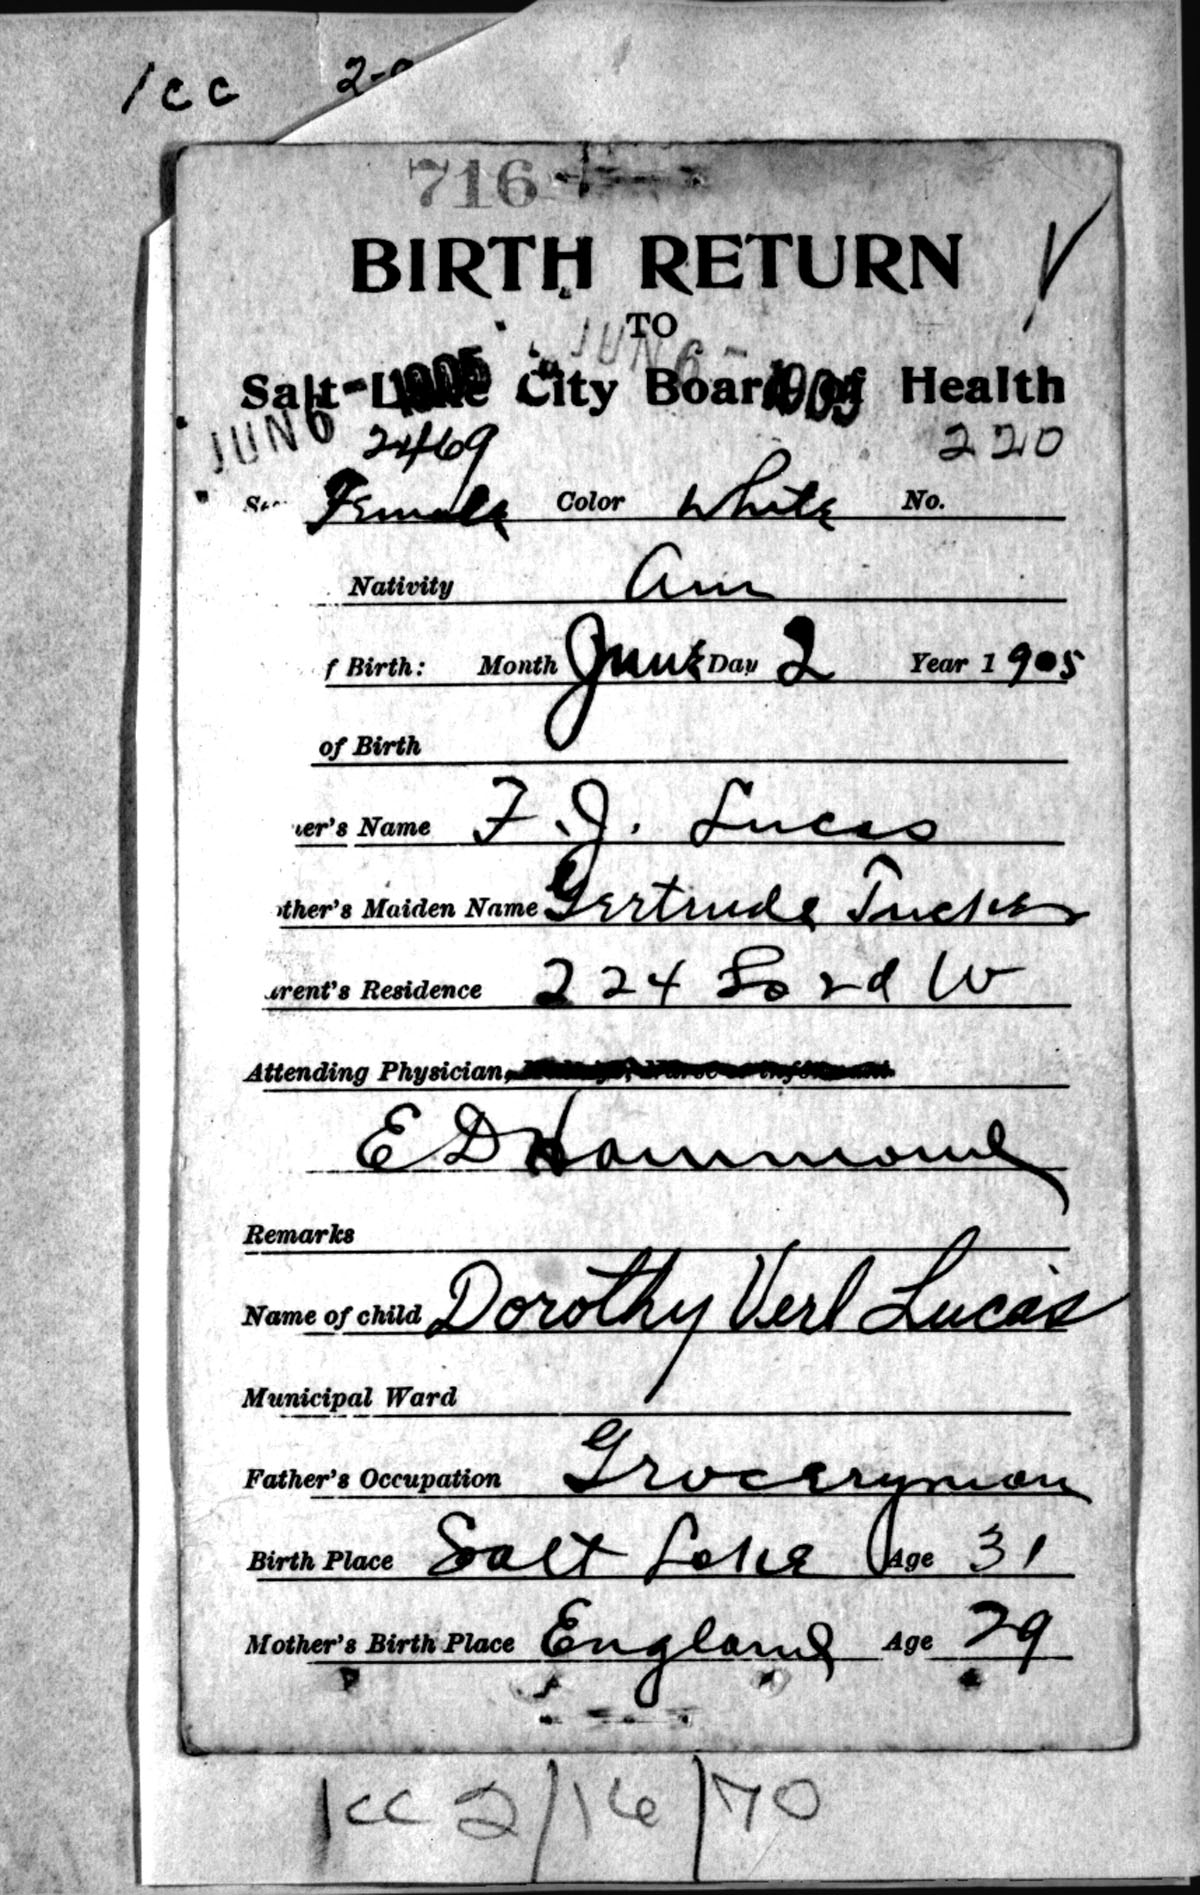 1cc 2-
716
BIRTH RETURN
TO
JUN 6 - 1905
Salt Lake City Board of Health
JUN 6 - 1905
2469 220
Female Color White No.
Nativity Am
f Birth: Month June Day 2 Year 1905
of Birth
er's Name F. J. Lucas
other's Maiden Name Gertrude Tucker
arent's Residence 224 So 2d W
Attending Physician,
E D Hammond
Remarks
Name of child Dorothy Verl Lucas
Municipal Ward
Father's Occupation Groceryman
Birth Place Salt Lake Age 31
Mother's Birth Place England Age 29
1cc 2/16/70